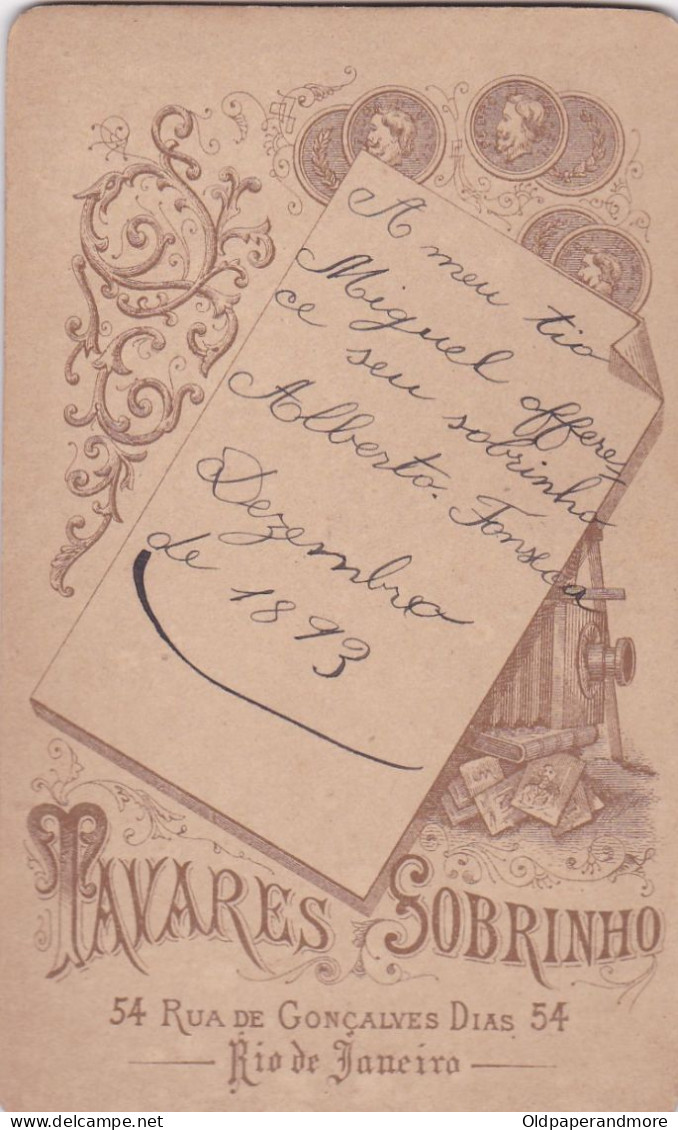 A meu tio
Miguel offere-
ce seu sobrinho
Alberto. Fonseca
Dezembro
de 1893
TAVARES SOBRINHO
54 RUA DE GONÇALVES DIAS 54
Rio de Janeiro
Oldpaperandmore